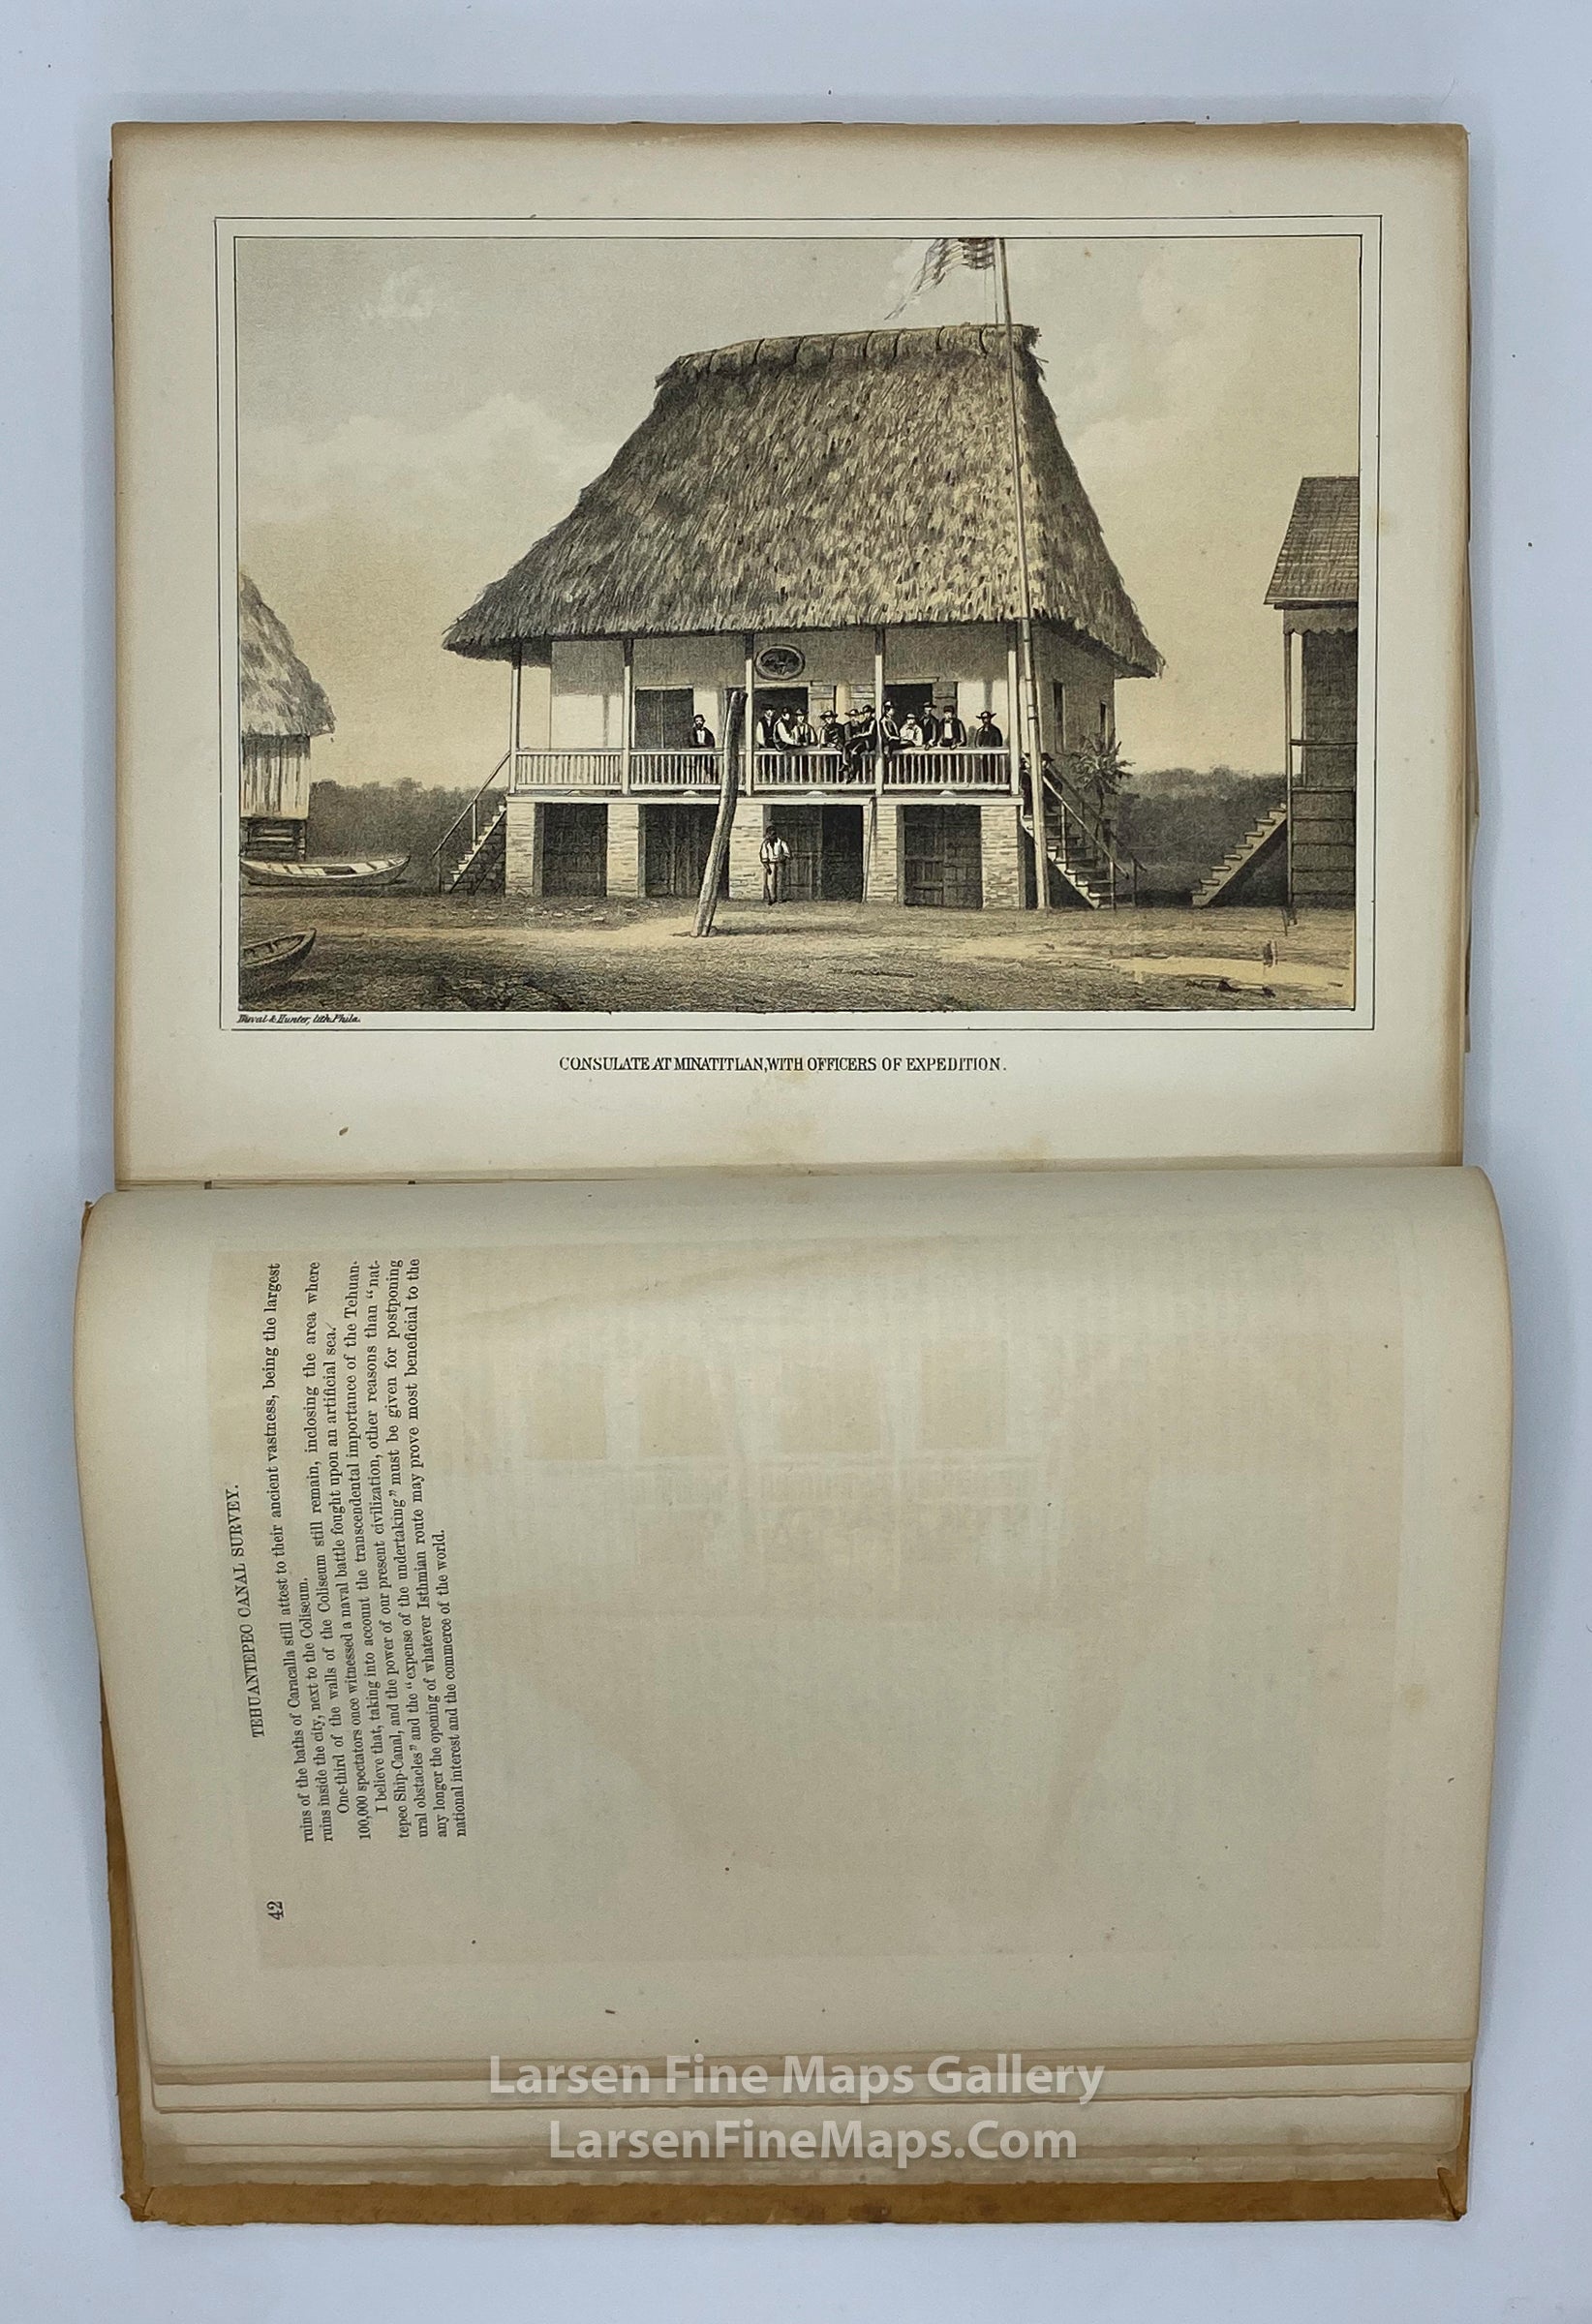 Duval & Hunter, lith. Phila.
CONSULATE AT MINATITLAN, WITH OFFICERS OF EXPEDITION.
42
TEHUANTEPEC CANAL SURVEY.
ruins of the baths of Caracalla still attest to their ancient vastness, being the largest
ruins inside the city, next to the Coliseum.
One-third of the walls of the Coliseum still remain, inclosing the area where
100,000 spectators once witnessed a naval battle fought upon an artificial sea.
I believe that, taking into account the transcendental importance of the Tehuan-
tepec Ship-Canal, and the power of our present civilization, other reasons than “nat-
ural obstacles” and the “expense of the undertaking” must be given for postponing
any longer the opening of whatever Isthmian route may prove most beneficial to the
national interest and the commerce of the world.
Larsen Fine Maps Gallery
LarsenFineMaps.Com